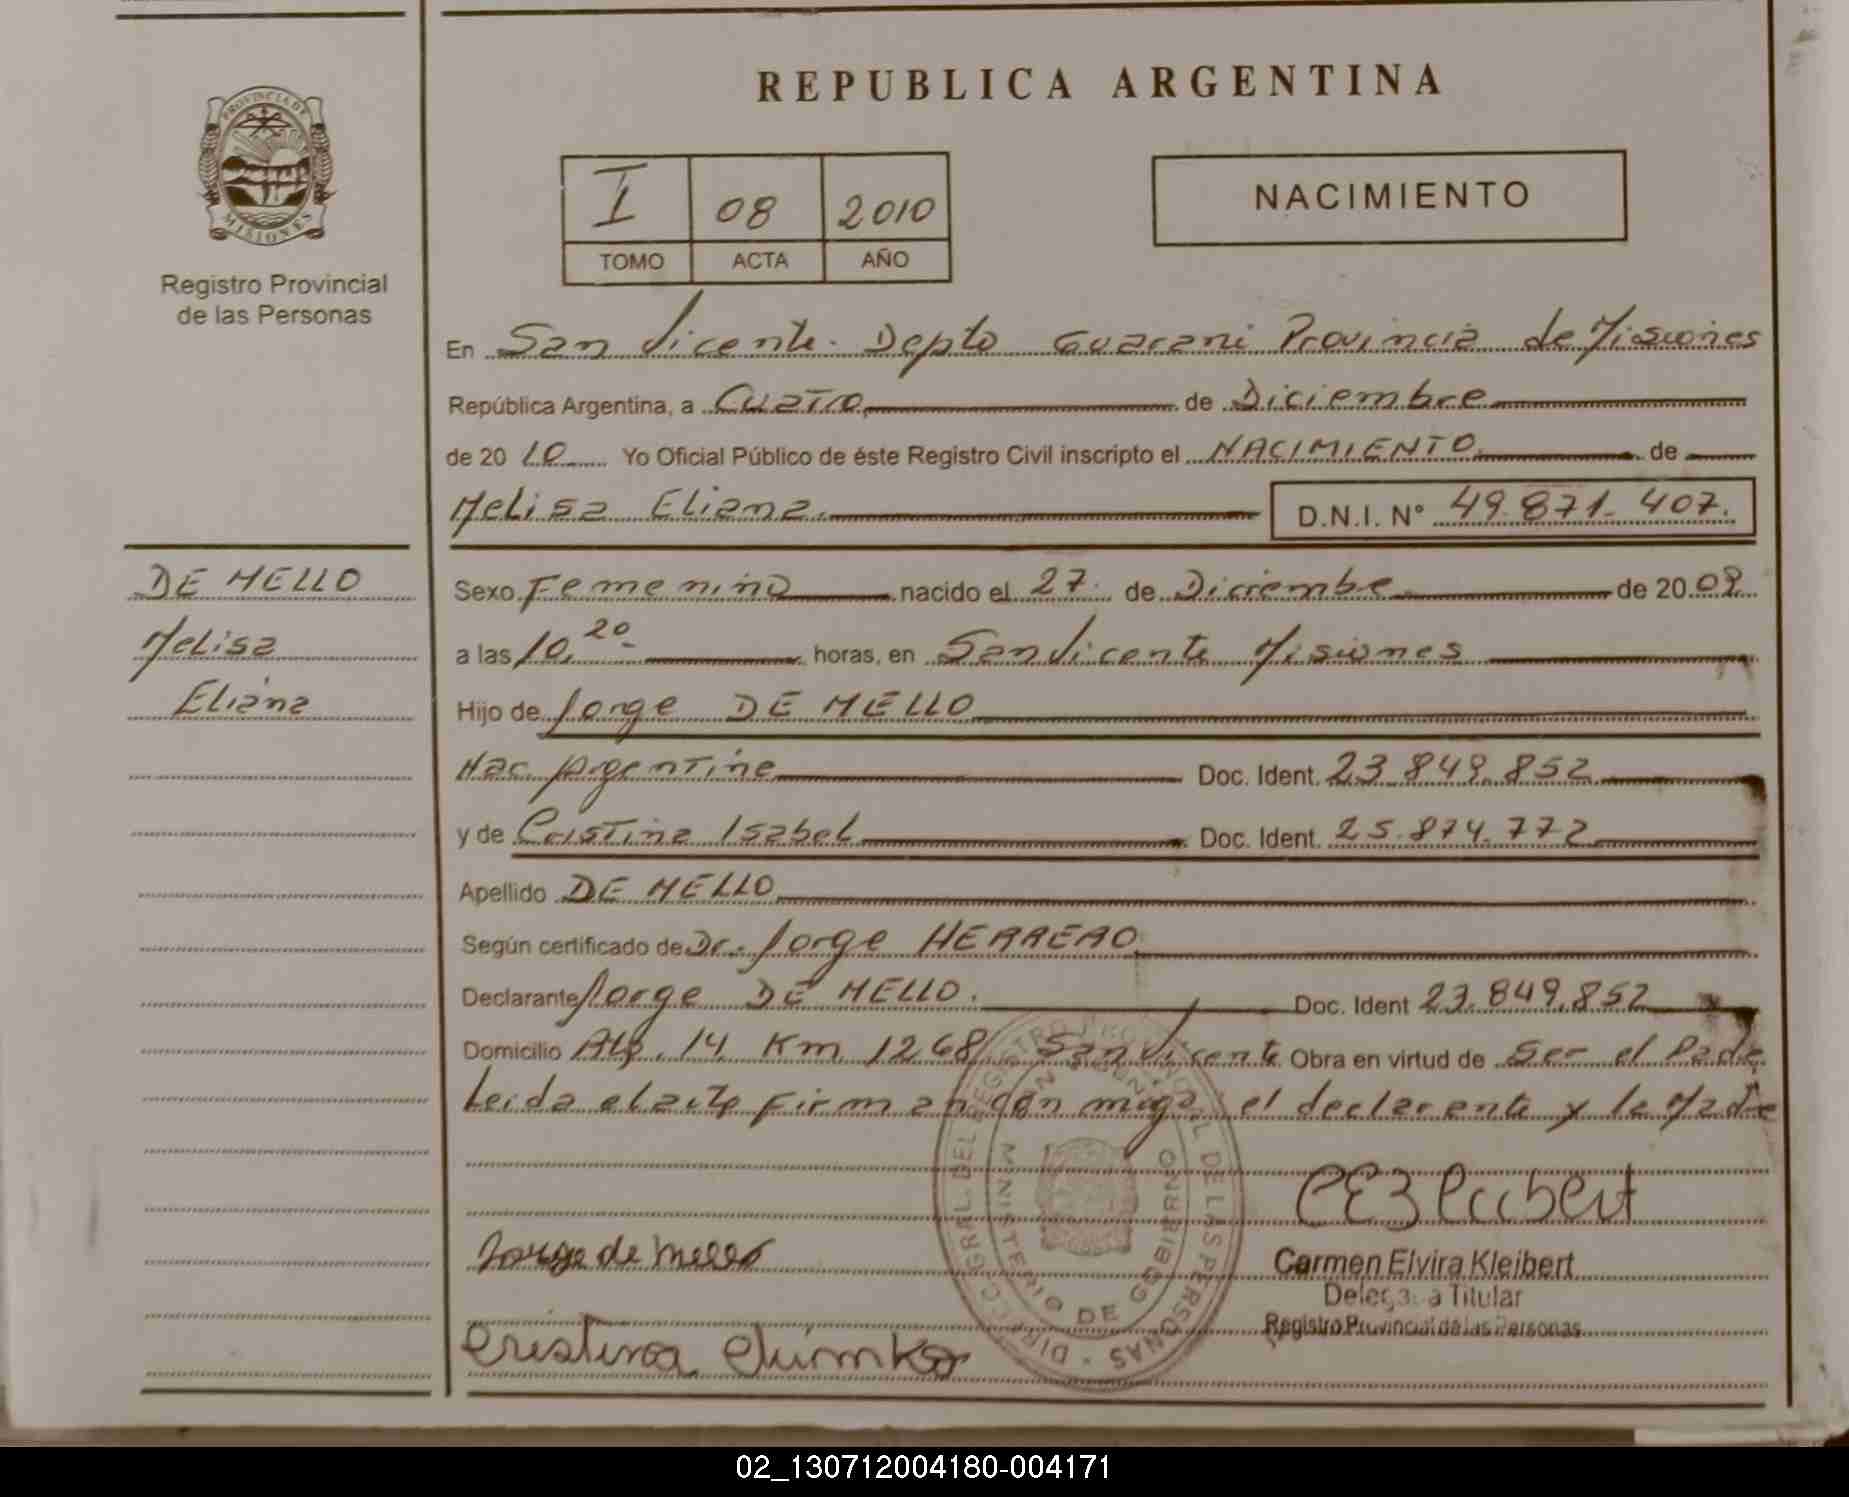 REPUBLICA ARGENTINA
PROVINCIA DE MISIONES
Registro Provincial
de las Personas
I 08 2010
TOMO ACTA AÑO
NACIMIENTO
En San Vicente. Depto Guarani Provincia de Misiones
República Argentina, a Cuatro de Diciembre
de 20 10 Yo Oficial Público de éste Registro Civil inscripto el NACIMIENTO de
Melisa Eliana. D.N.I. N° 49.871.407.
DE MELLO
Melisa
Eliana
Sexo Femenino nacido el 27. de Diciembe de 20 09
a las 10,20 horas, en San Vicente Misiones
Hijo de Jorge DE MELLO
Nac. Argentina Doc. Ident. 23.849.852
y de Cristina Isabel Doc. Ident. 25.874.772
Apellido DE MELLO
Según certificado de Dr. Jorge HERRERO
Declarante Jorge DE MELLO. Doc. Ident 23.849.852
Domicilio 14 Km 1268 San Vicente Obra en virtud de Ser el Padre
Leida el acta firman con migo el declarante y la Madre
DIRECC. GRAL. DEL REGISTRO PROVINCIAL DE LAS PERSONAS
MINISTERIO DE GOBIERNO
Jorge de mello
Carmen Elvira Kleibert
Delegada Titular
Registro Provincial de las Personas
Cristina
02_130712004180-004171